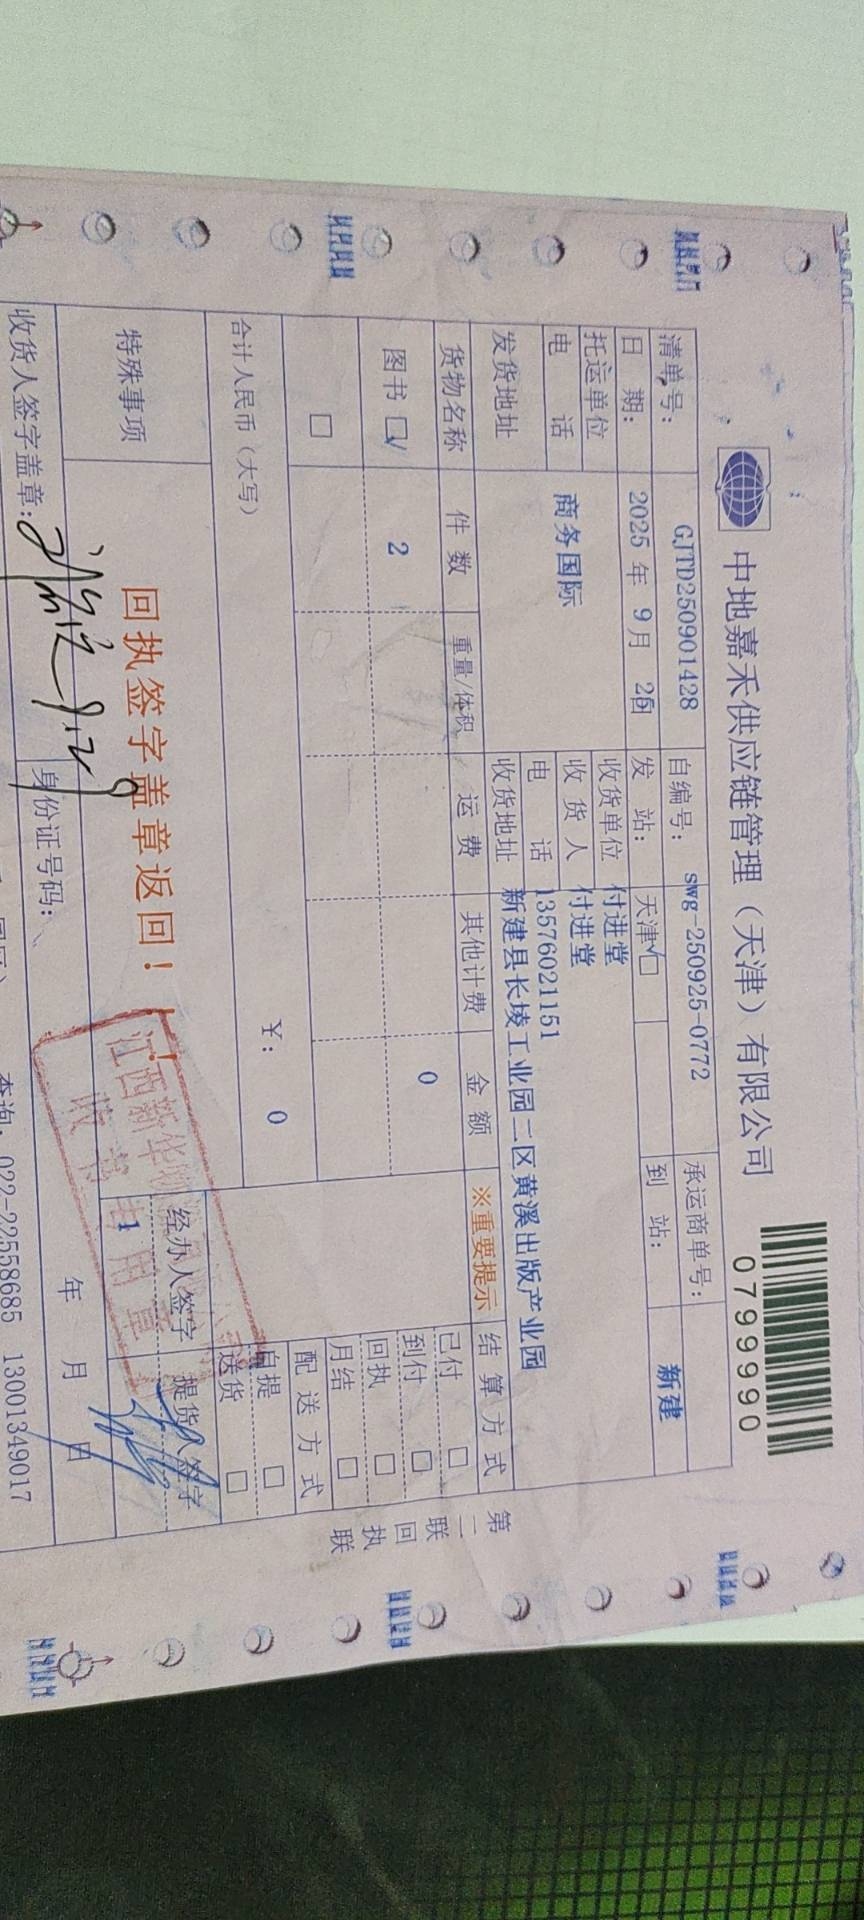 中地嘉禾供应链管理（天津）有限公司
0799990
清单号： GJTD250901428 自编号： swg-250925-0772 承运商单号：
日 期： 2025 年 9 月 日 发 站： 天津 □ 到 站： 新建
托运单位 商务国际 收货单位 付进堂
收 货 人 付进堂
电 话 电 话 13576021151
发货地址 收货地址 新建县长堎工业园二区黄溪出版产业园
货物名称 件 数 重量/体积 运 费 其他计费 金 额 ※重要提示 结 算 方 式
图书 □√ 2 0 已付 □
到付 □
回执 □
□ 月结 □
配 送 方 式
合计人民币（大写） ￥： 0 自提 □
送货 □
特殊事项 回执签字盖章返回！ 经办人签字 提货人签字
1
收货人签字盖章： 身份证号码： 年 月 日
查询：022-22558685 13001349017
第二联 回执联
江西新华
收书专用章